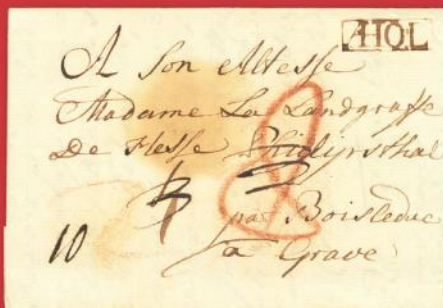 HOL
A Son Altesse
Madame La Landgraffe
De Hesse
par Boisleduc
10
a Grave